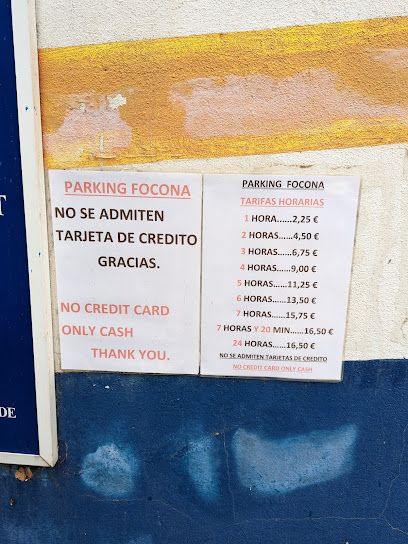 T
DE
PARKING FOCONA
NO SE ADMITEN
TARJETA DE CREDITO
GRACIAS.
NO CREDIT CARD
ONLY CASH
THANK YOU.
PARKING FOCONA
TARIFAS HORARIAS
1 HORA......2,25 €
2 HORAS......4,50 €
3 HORAS......6,75 €
4 HORAS......9,00 €
5 HORAS......11,25 €
6 HORAS......13,50 €
7 HORAS......15,75 €
7 HORAS Y 20 MIN......16,50 €
24 HORAS......16,50 €
NO SE ADMITEN TARJETAS DE CREDITO
NO CREDIT CARD ONLY CASH